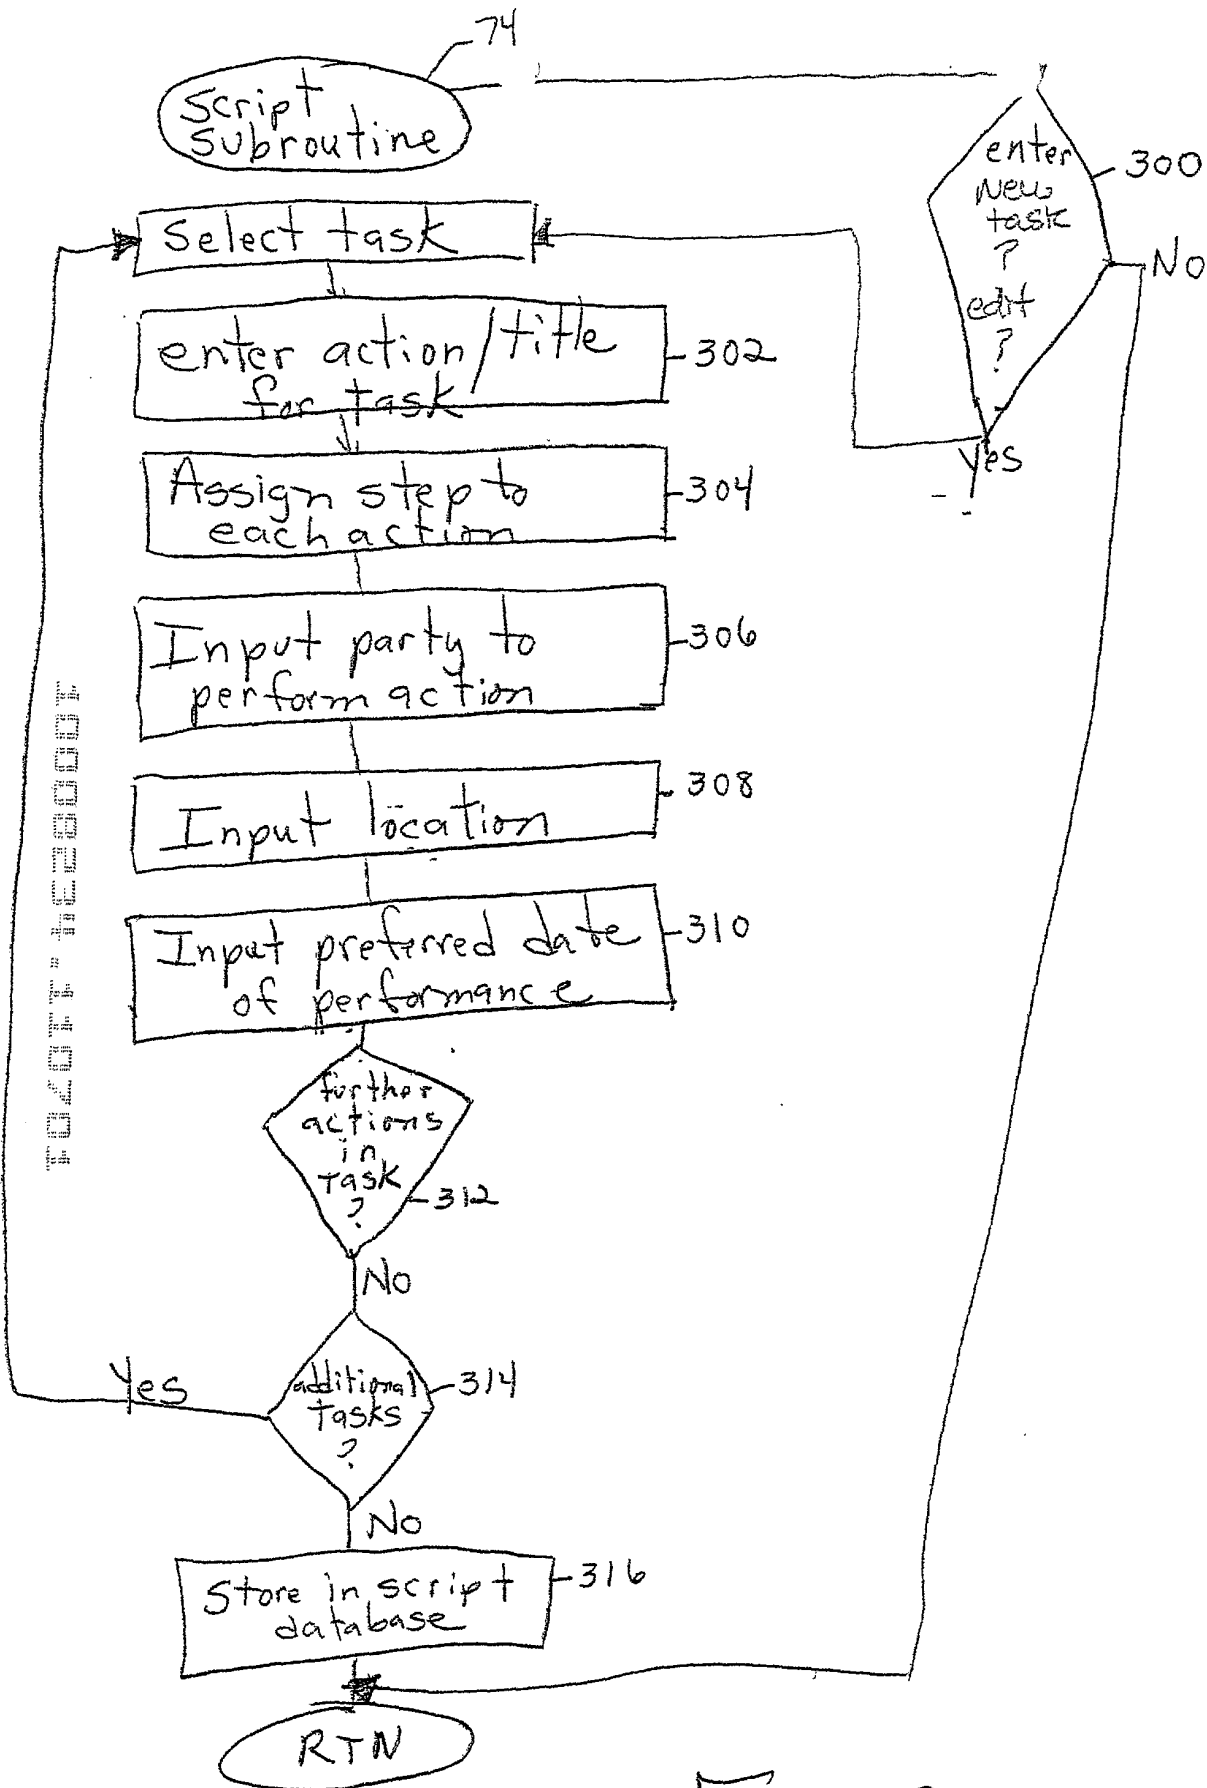 74
Script
Subroutine
enter
New
task
?
edit
?
300
No
Yes
Select task
enter action/title
for task
302
Assign step to
each action
304
Input party to
perform action
306
Input location
308
Input preferred date
of performance
310
further
actions
in
task
?
312
No
additional
tasks
?
314
Yes
No
Store in script
database
316
RTN
10008234.110701